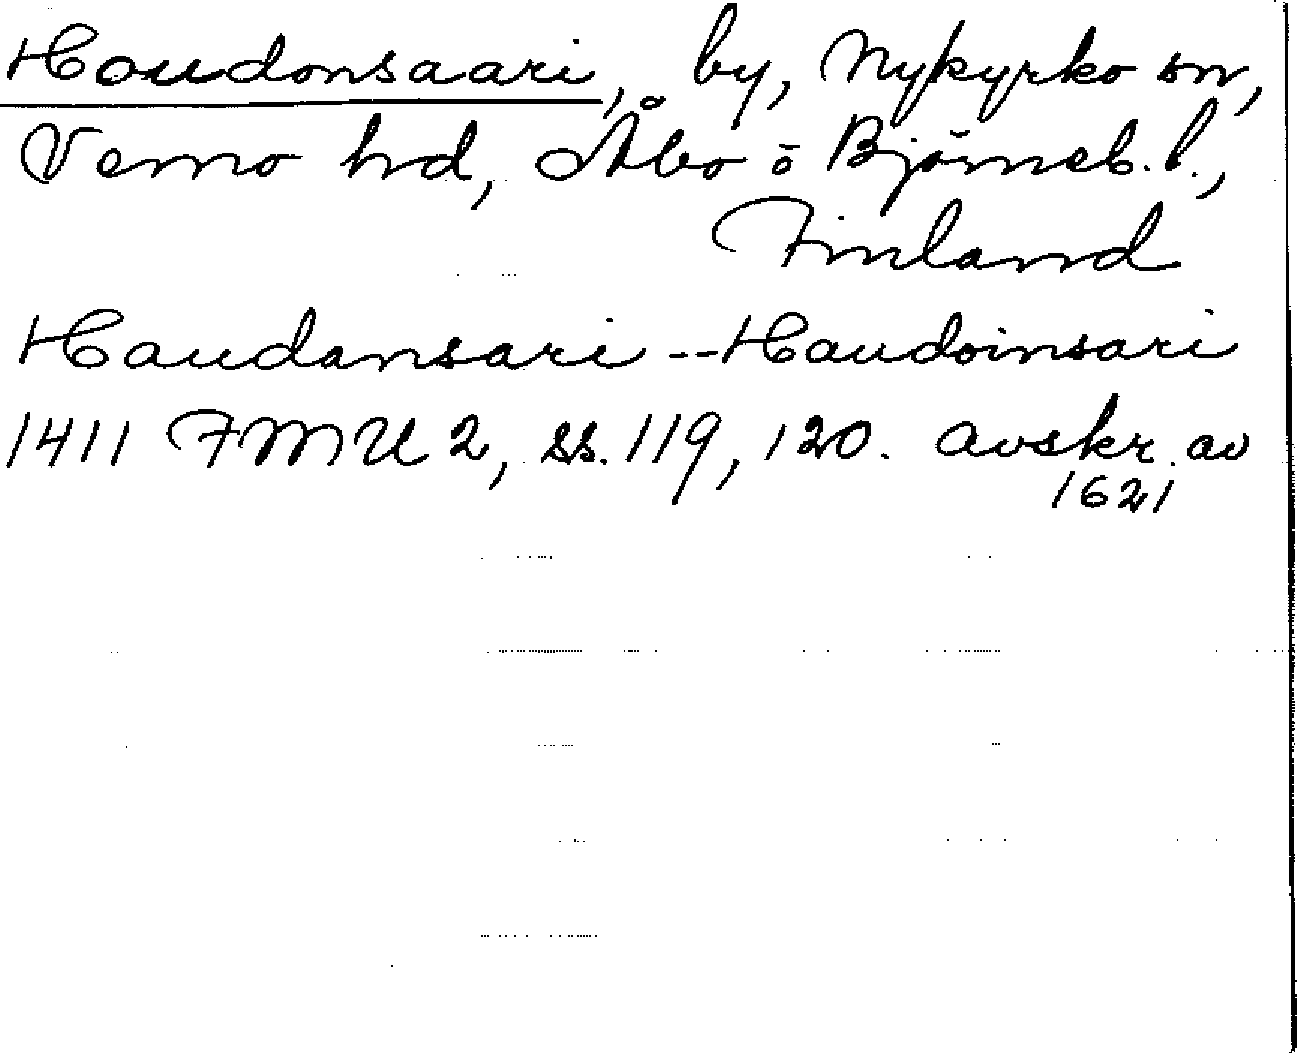 Haudonsaari, by, Nykyrko sn,
Vemo hd, Åbo o Björneb. l.,
Finland
Haudansari -- Haudoinsari
1411 FMU 2, ss. 119, 120. avskr. av
1621